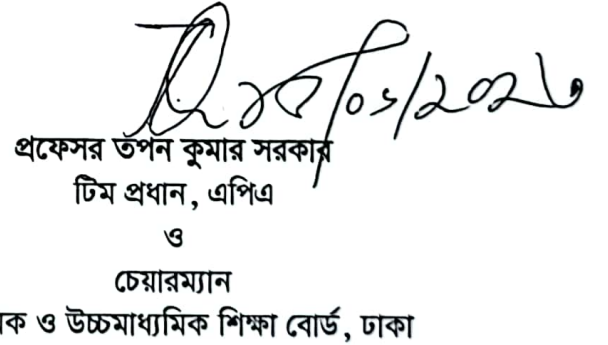 /০১/২০২৩
প্রফেসর তপন কুমার সরকার
টিম প্রধান, এপিএ
ও
চেয়ারম্যান
ক ও উচ্চমাধ্যমিক শিক্ষা বোর্ড, ঢাকা